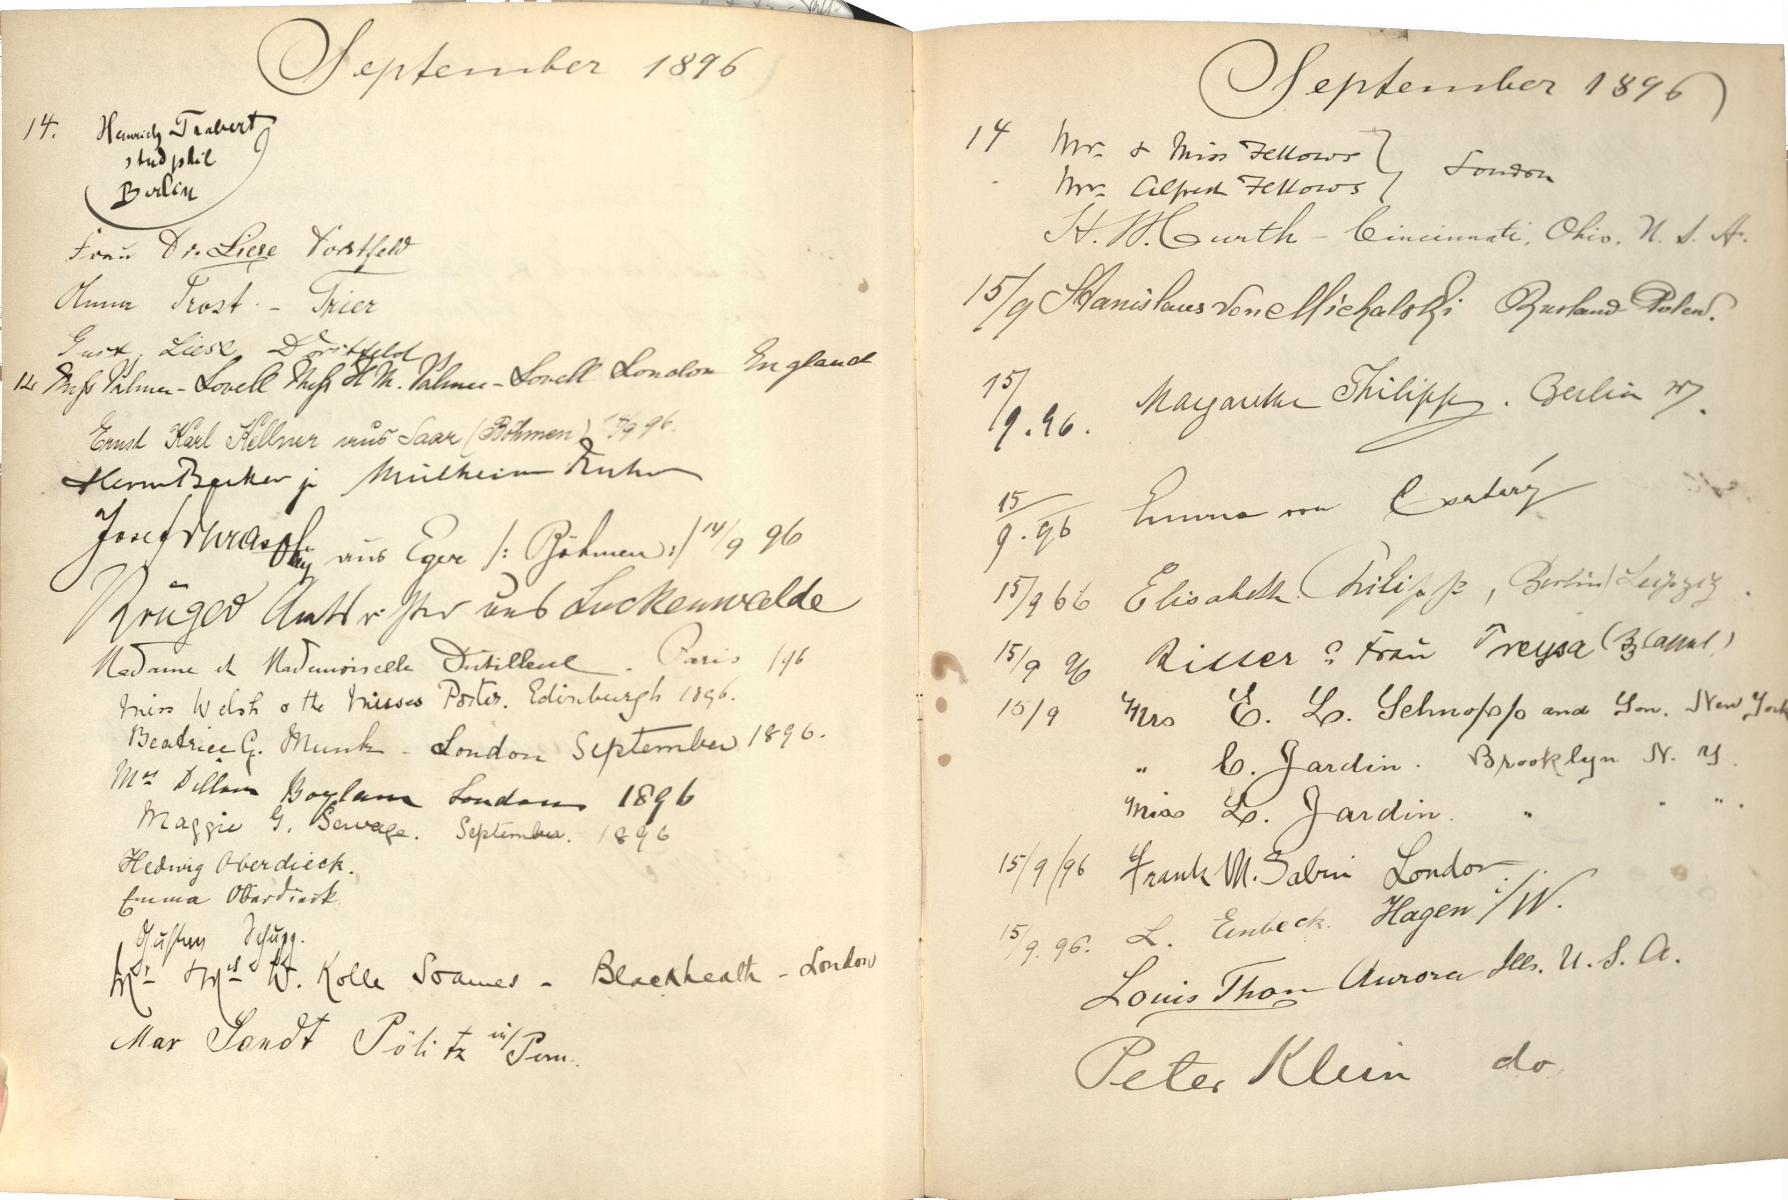 September 1896
14. Heinrich Trabert
stud phil
Berlin
Frau Dr. Liese Dörstfeld
Anna Trost - Trier
Gust. Liese Dörstfeld
14 Miss Palmer-Lovell Miss H. M. Palmer-Lovell London England
Ernst Karl Kellner aus Saar (Böhmen) 14/9 96.
Herm Becker jr Mülheim Ruhr
Josef aus Eger /: Böhmen :/ 14/9 96
Krüger aus Luckenwalde
Madame et Mademoiselle Dutilleul. Paris 196
Miss Welsh & the Misses Porter. Edinburgh 1896.
Beatrice G. Munk - London September 1896.
Mrs Dillon Boylan London 1896
Maggie G. Savage. September. 1896
Hedwig Oberdieck.
Emma Oberdieck
Gustav
Mr & Mrs W. Kolle Soames - Blackheath - London
Max Sandt Pölitz in/Pom.
September 1896
14 Mr & Miss Fellows } London
Mr Alfred Fellows
H. W. Hurth - Cincinnati, Ohio, U. S. A.
15/9 Stanislaus von Michalski Rusland Polen.
15/9.96. Margarethe Philipp. Berlin W.
15/9.96 Emma von Csatáry
15/9 66 Elisabeth Philipp, Berlin/Leipzig.
15/9 96 Frau Treysa (Bz Cassel)
15/9 Mrs E. L. Schnopp and Son. New York
" C. Jardin. Brooklyn N. Y.
Miss L. Jardin. " " "
15/9/96 Frank M. Sabin London.
15/9.96. L. Einbeck. Hagen i/W.
Louis Thon Aurora Ills. U. S. A.
Peter Klein do